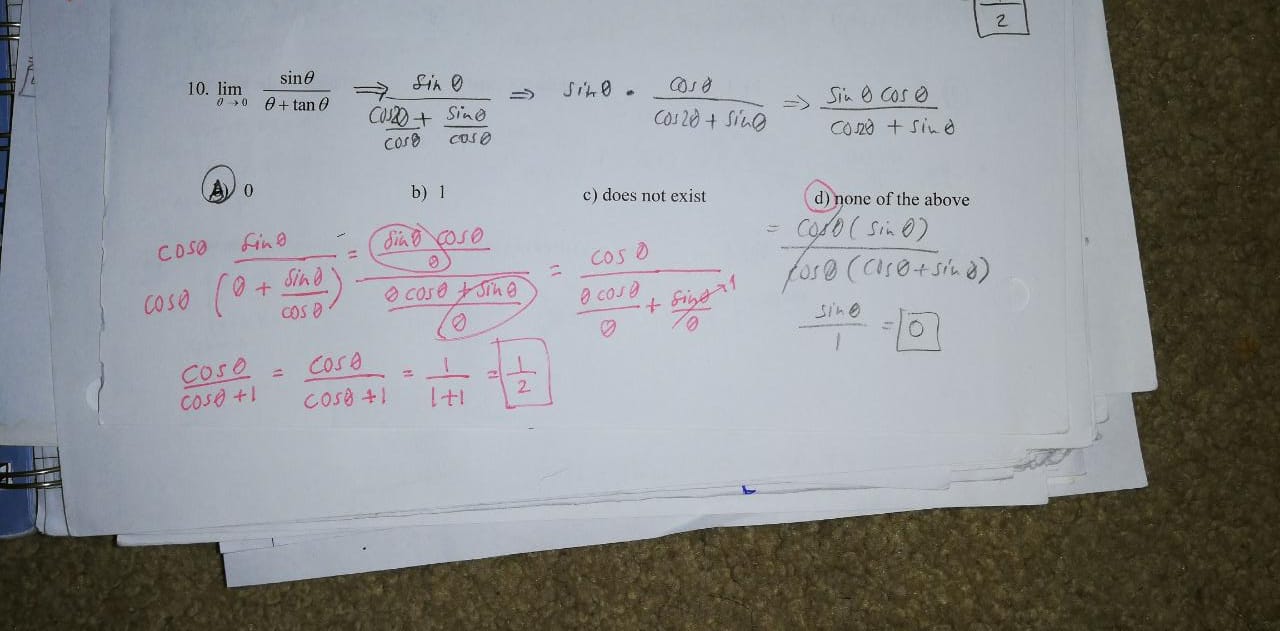 2
10. lim θ→0 sinθ / (θ + tan θ) ⇒ sin θ / (cos2θ/cosθ + sinθ/cosθ) ⇒ sinθ · cosθ / (cos2θ + sinθ) ⇒ sin θ cos θ / (cos2θ + sin θ)
a) 0 b) 1 c) does not exist d) none of the above
= cosθ (sin θ) / cosθ (cosθ + sin θ)
sinθ / 1 = 0
cosθ sinθ / cosθ (θ + sinθ/cosθ) = (sinθ cosθ / θ) / ((θ cosθ + sinθ) / θ) = cos θ / (θ cosθ / θ + sinθ / θ) 1
cosθ / (cosθ + 1) = cosθ / (cosθ + 1) = 1 / (1+1) = 1/2